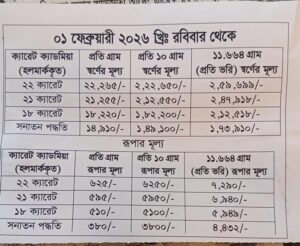 ০১ ফেব্রুয়ারী ২০২৬ খ্রিঃ রবিবার থেকে
ক্যারেট ক্যাডমিয়া (হলমার্ককৃত) প্রতি গ্রাম স্বর্ণের মূল্য প্রতি ১০ গ্রাম স্বর্ণের মূল্য ১১.৬৬৪ গ্রাম (প্রতি ভরি) স্বর্ণের মূল্য
২২ ক্যারেট ২২,২৬৫/- ২,২২,৬৫০/- ২,৫৯,৬৯৯/-
২১ ক্যারেট ২১,২৫৫/- ২,১২,৫৫০/- ২,৪৭,৯১৮/-
১৮ ক্যারেট ১৮,২২০/- ১,৮২,২০০/- ২,১২,৫১৮/-
সনাতন পদ্ধতি ১৪,৯১০/- ১,৪৯,১০০/- ১,৭৩,৯১০/-
রূপার মূল্য
ক্যারেট ক্যাডমিয়া (হলমার্ককৃত) প্রতি গ্রাম রূপার মূল্য প্রতি ১০ গ্রাম রূপার মূল্য ১১.৬৬৪ গ্রাম (প্রতি ভরি) রূপার মূল্য
২২ ক্যারেট ৬২৫/- ৬২৫০/- ৭,২৯০/-
২১ ক্যারেট ৫৯৫/- ৫৯৫০/- ৬,৯৪০/-
১৮ ক্যারেট ৫১০/- ৫১০০/- ৫,৯৪৯/-
সনাতন পদ্ধতি ৩৮০/- ৩৮০০/- ৪,৪৩২/-